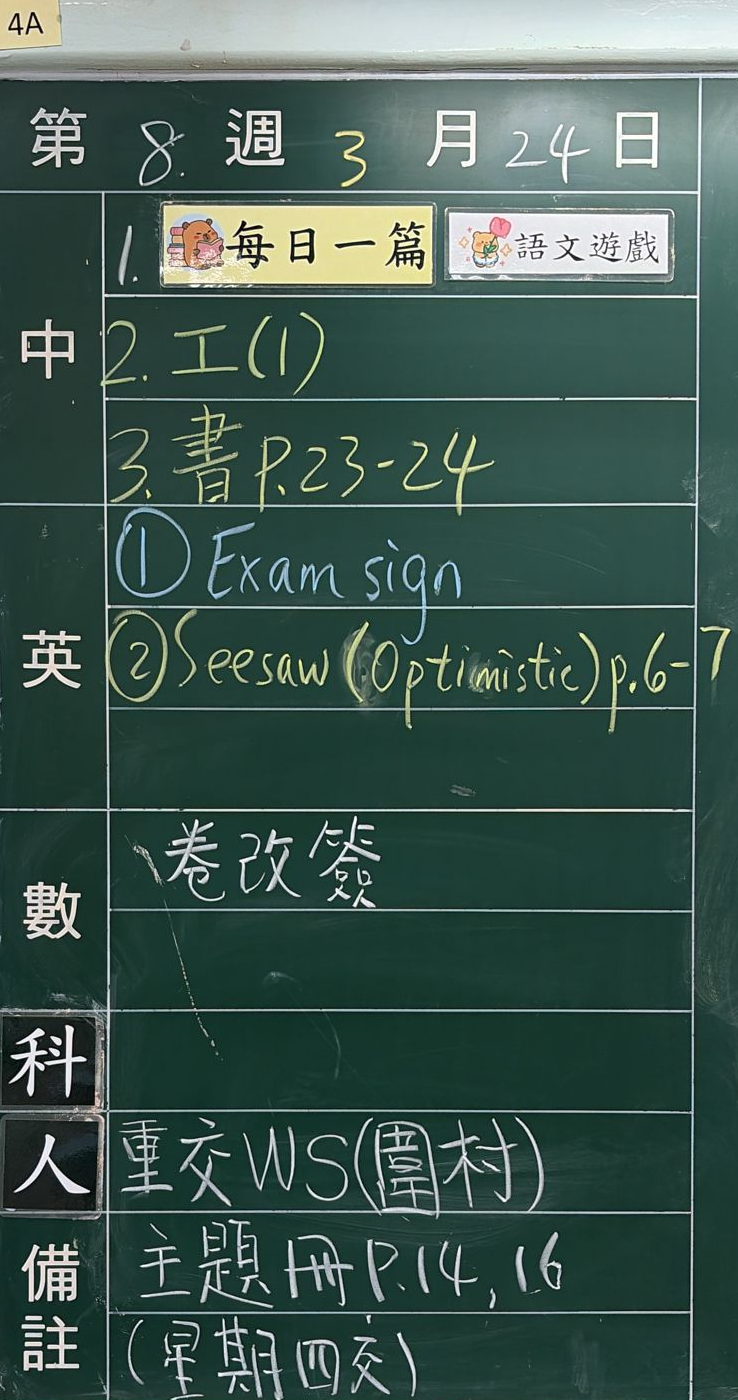 4A
第 8. 週 3 月 24 日
中
1. 每日一篇 語文遊戲
2. 工(1)
3. 書 P.23-24
英
① Exam sign
② Seesaw (Optimistic) p.6-7
數
卷改簽
科
人
重交WS(圍村)
備註
主題冊P.14, 16
(星期四交)